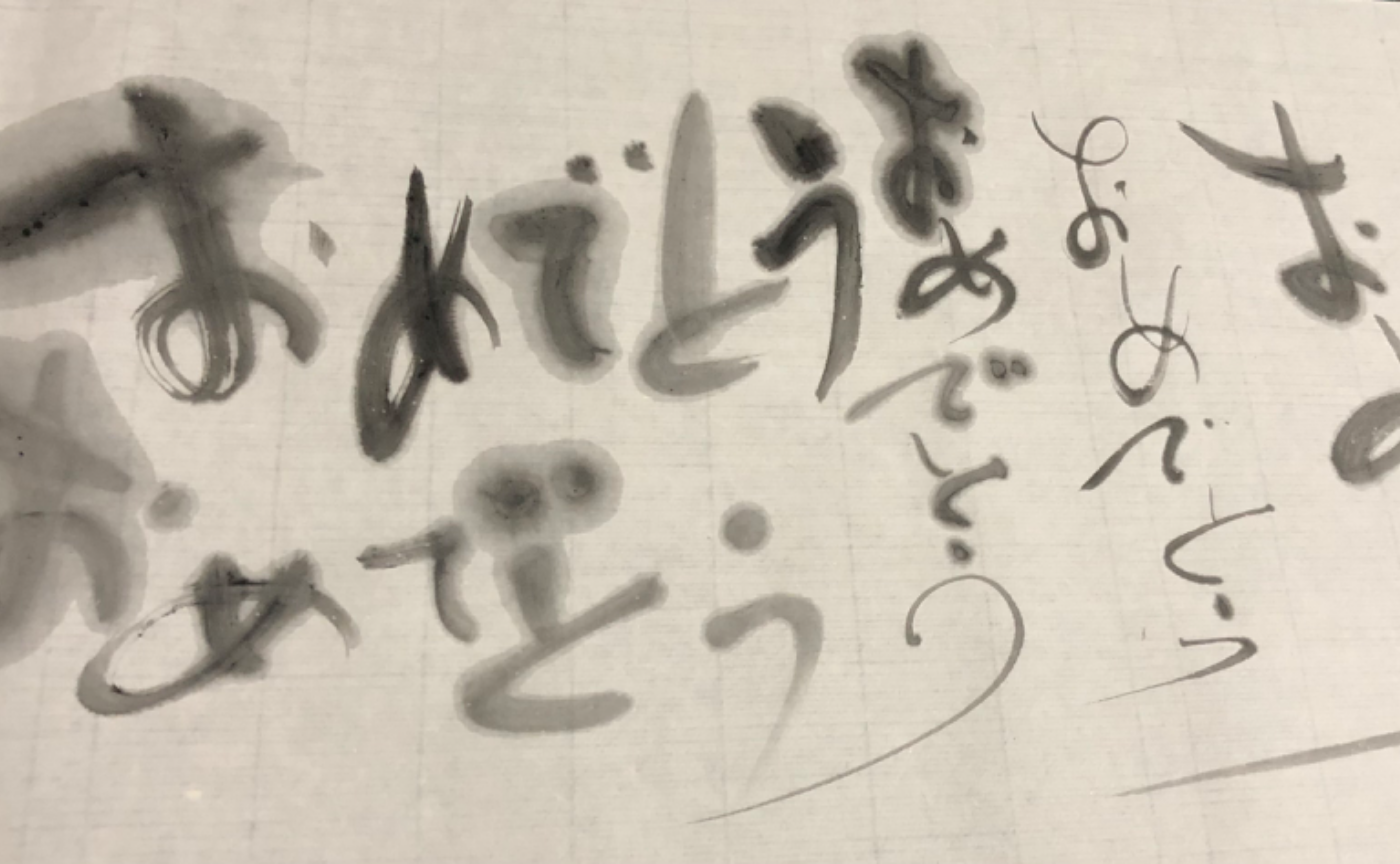 おめでとう
おめでとう
おめでとう
おめでとう
お